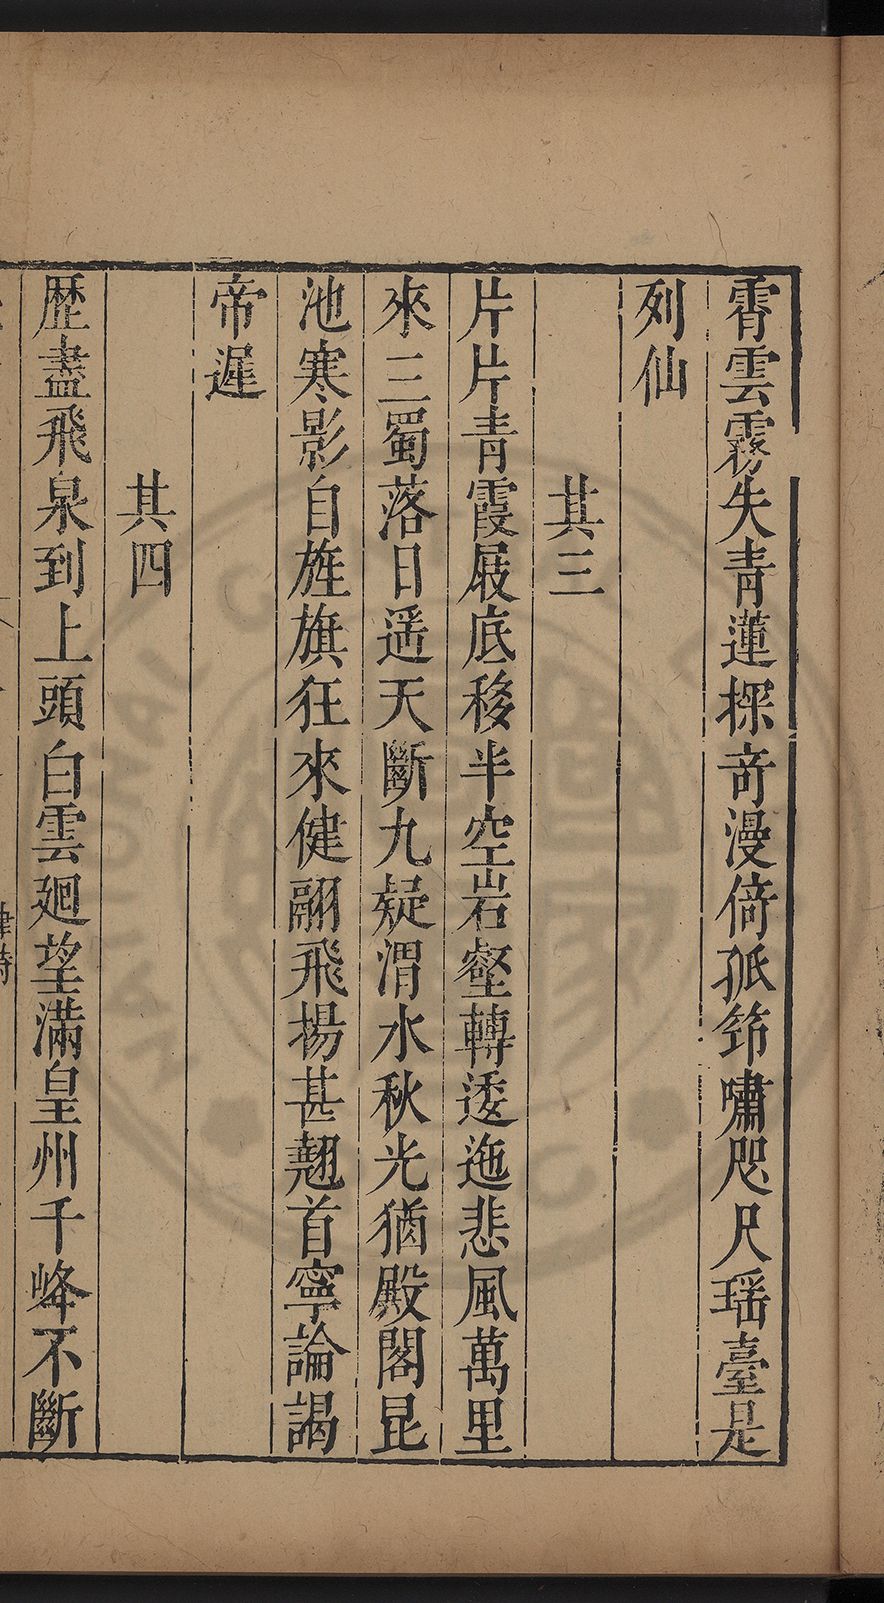 霄雲霧失青蓮探竒漫倚孤筇嘯咫尺瑶臺是
列仙
其三
片片青霞屐底移半空岩壑轉逶迤悲風萬里
來三蜀落日遥天斷九疑渭水秋光猶殿閣昆
池寒影自旌旗狂來健翮飛揚甚翹首寧論謁
帝遲
其四
歴盡飛泉到上頭白雲廻望滿皇州千峰不斷